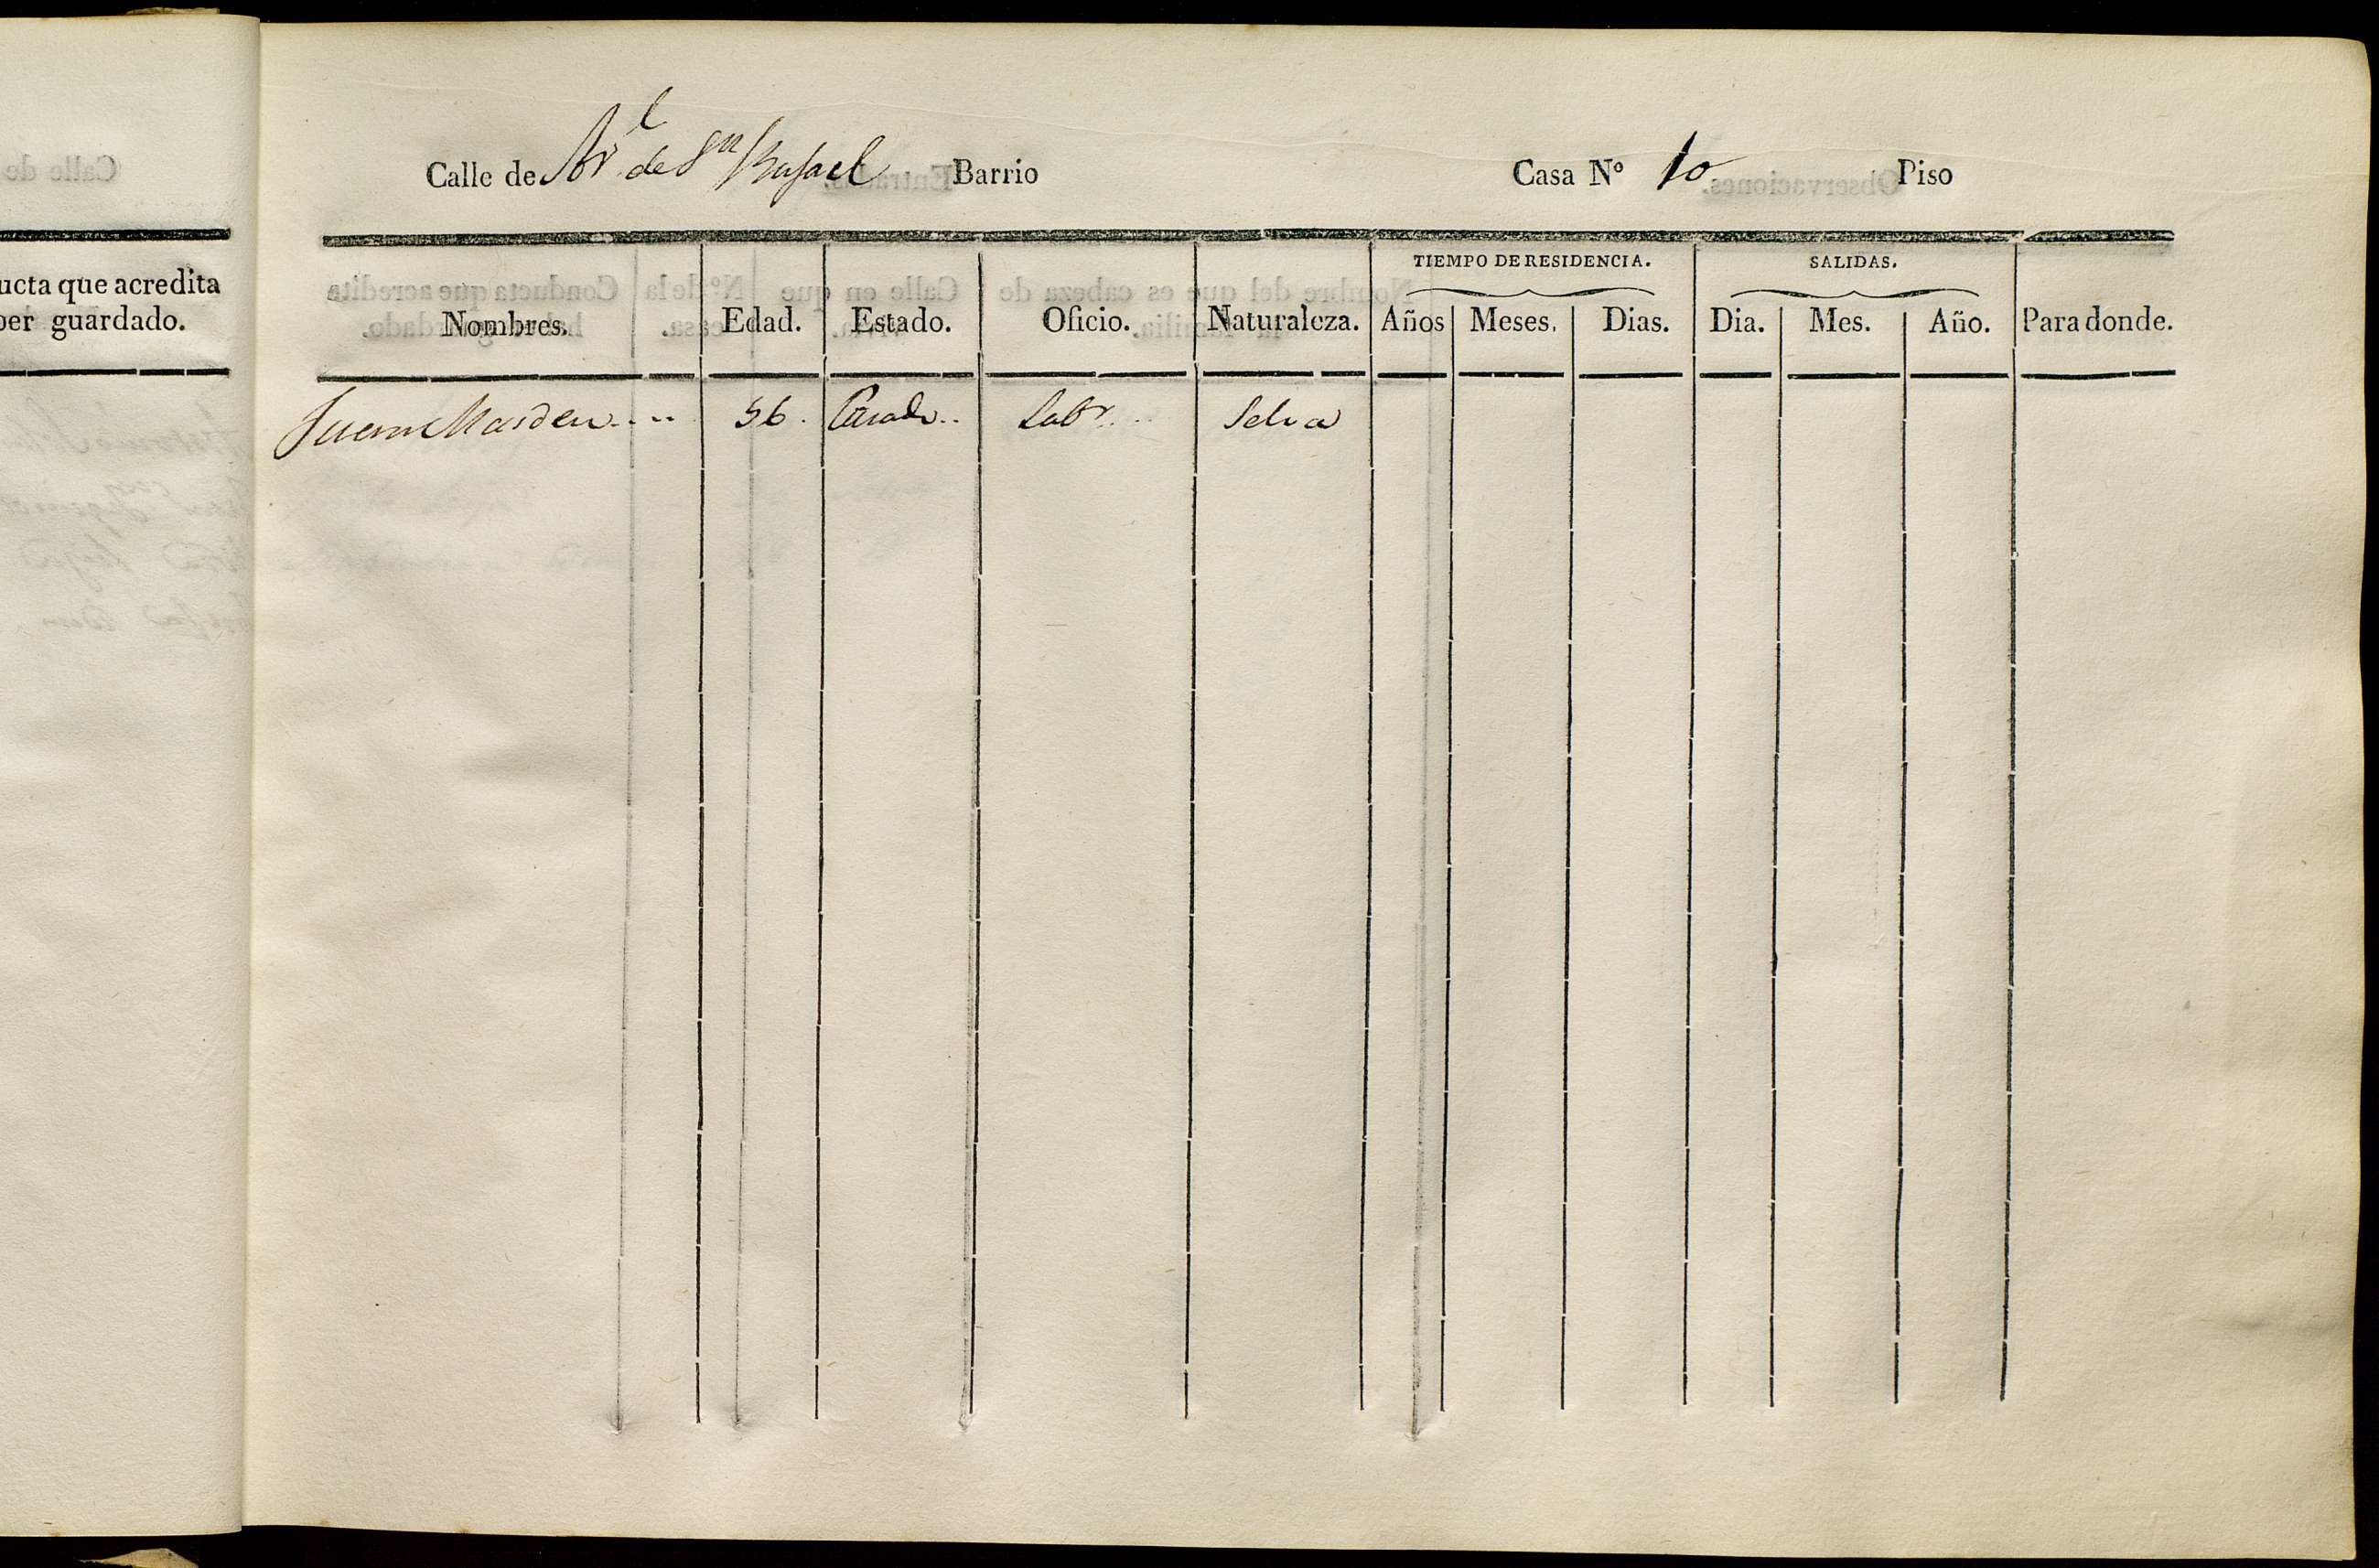 ucta que acredita
ber guardado.
Calle de Arl de Sn Rafael Barrio Casa Nº 10 Piso
TIEMPO DE RESIDENCIA. SALIDAS.
Nombres. Edad. Estado. Oficio. Naturaleza. Años Meses. Dias. Dia. Mes. Año. Para donde.
Juan Masdeu.... 56. Casado.. Labr... Selva